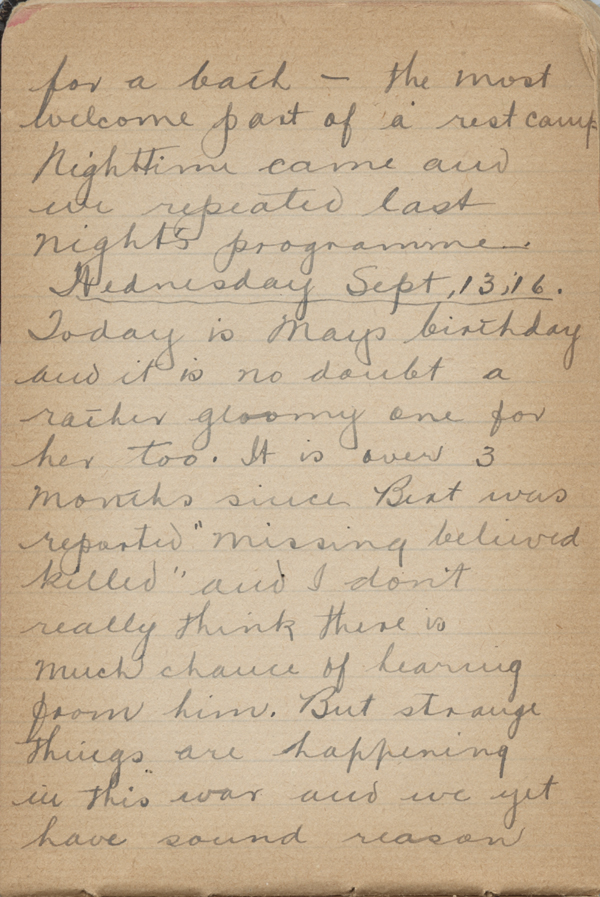 for a bath – the most
welcome part of a rest camp
Nighttime came and
we repeated last
night's programme.
Wednesday Sept, 13, 16.
Today is Mays birthday
and it is no doubt a
rather gloomy one for
her too. It is over 3
months since Bert was
reported "missing believed
killed" and I don't
really think there is
much chance of hearing
from him. But strange
things are happening
in this war and we yet
have sound reason